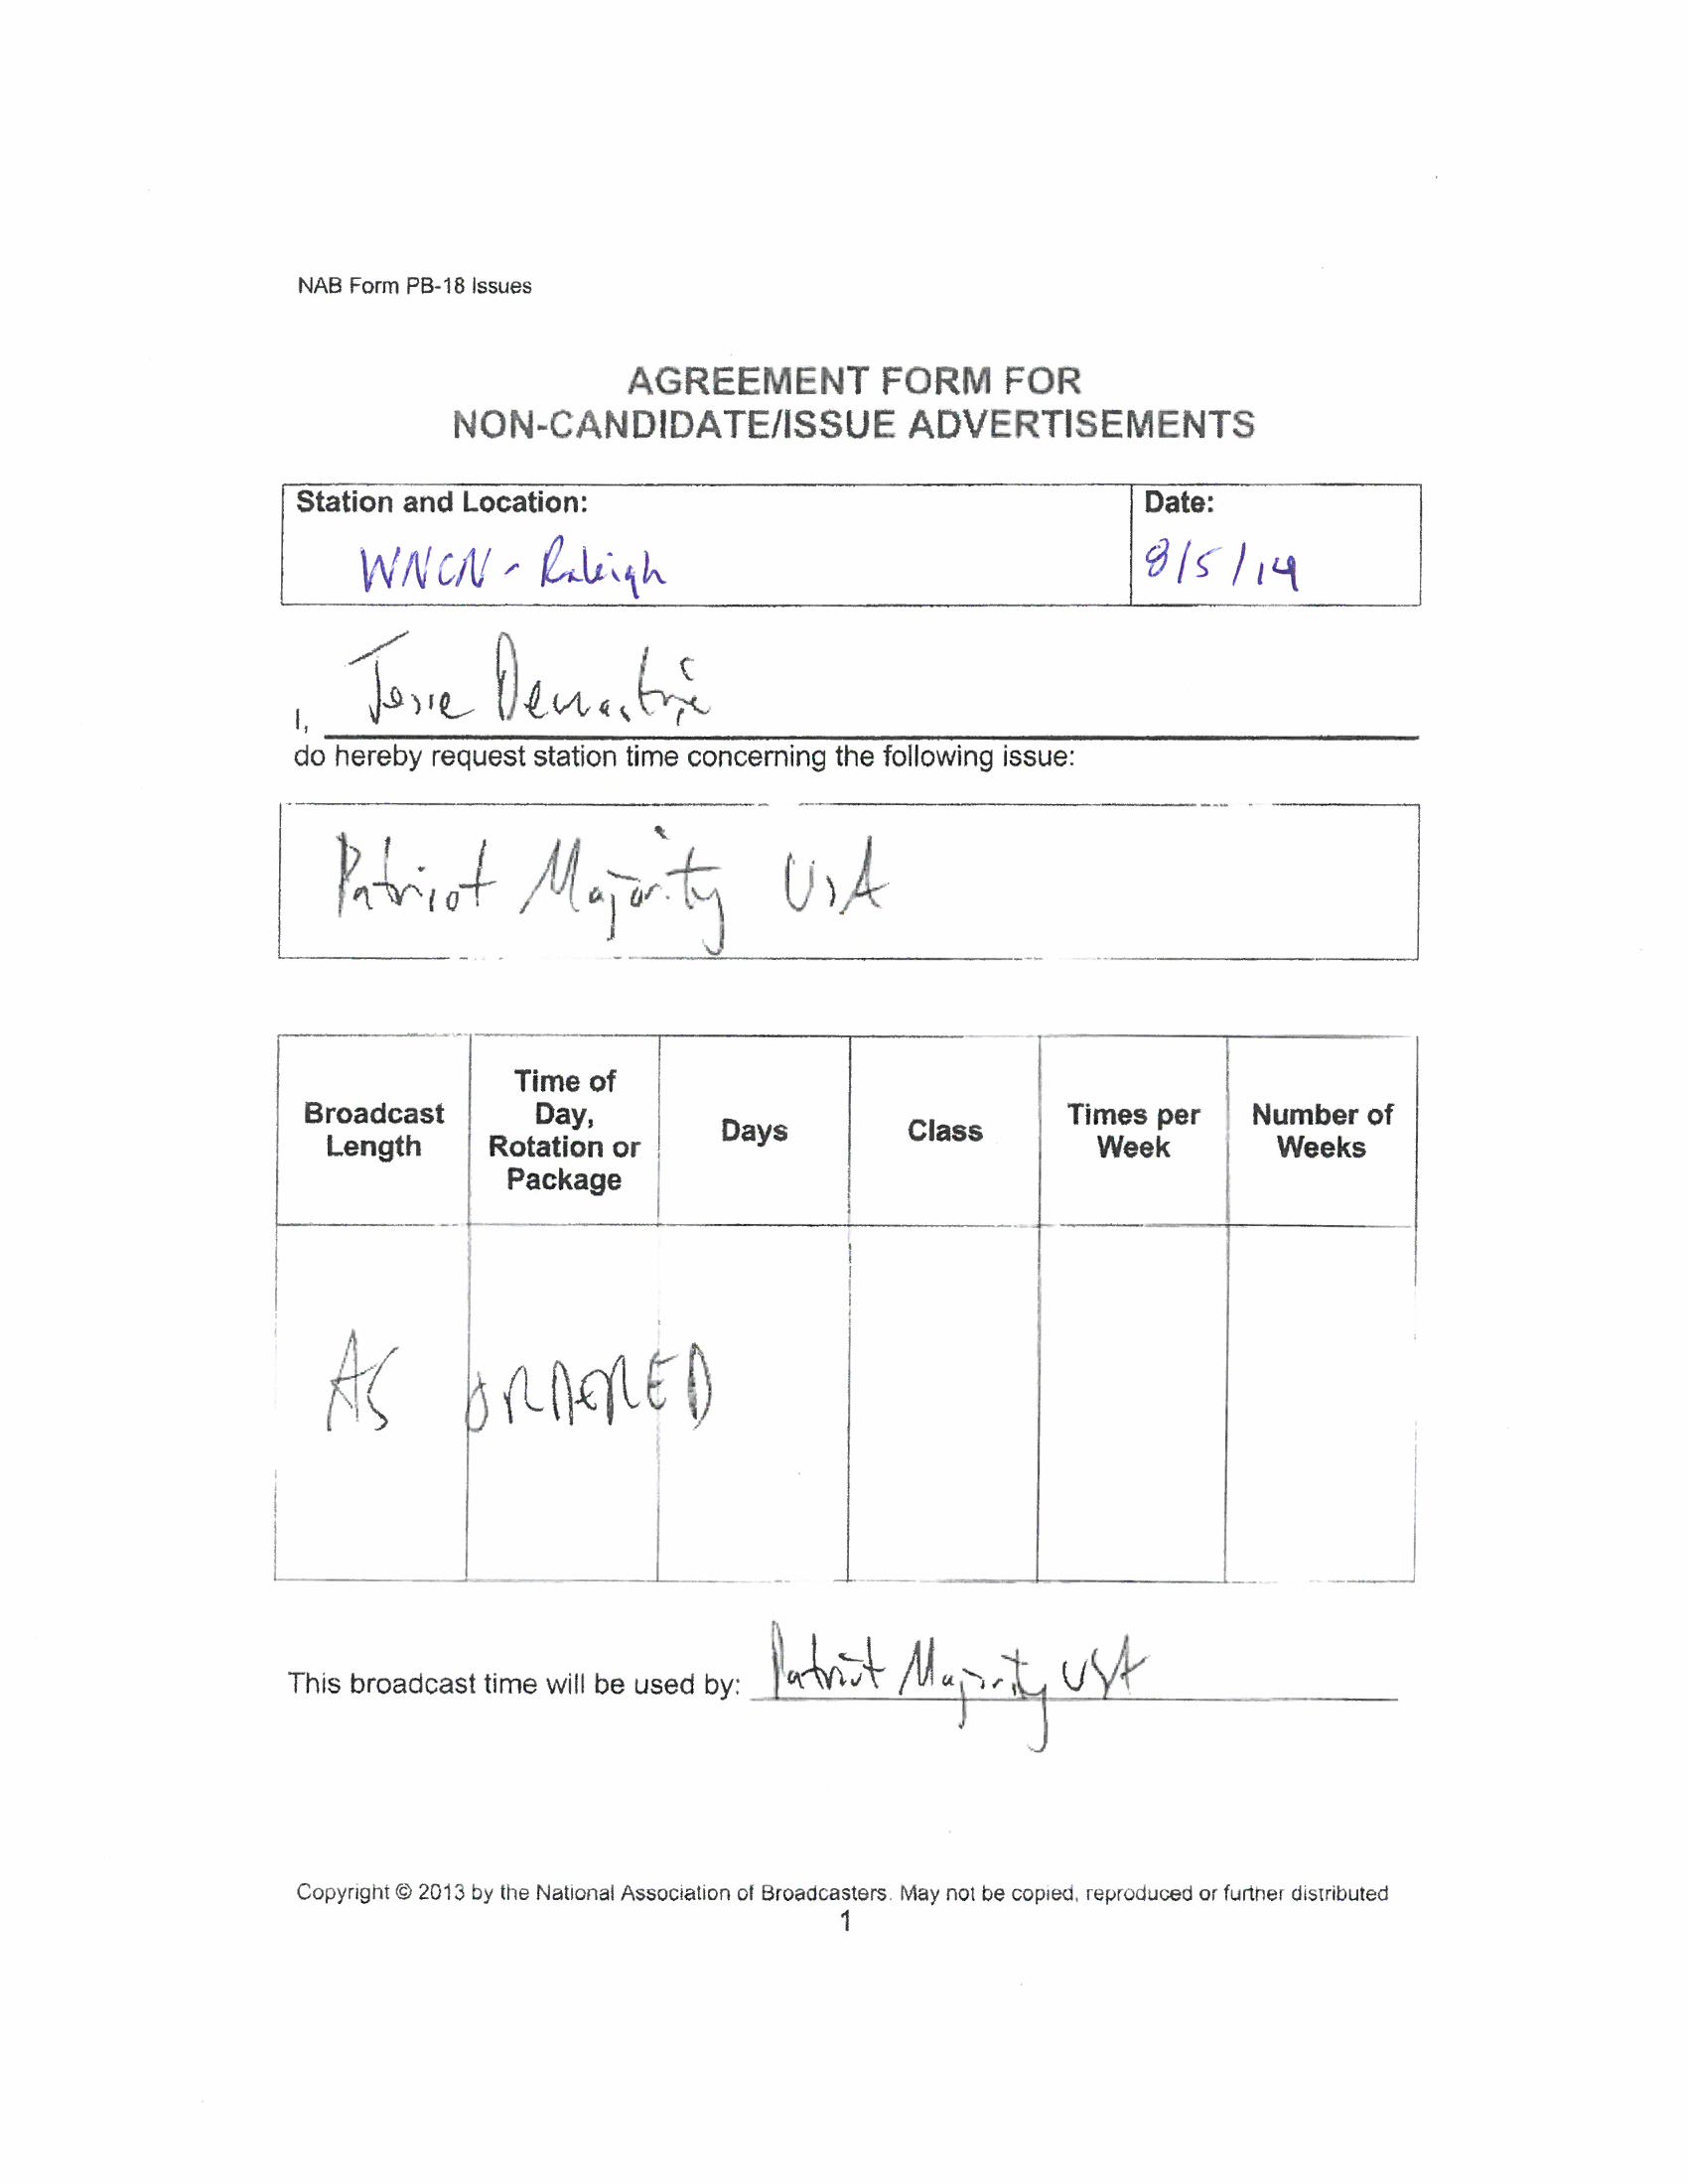 NAB Form PB-18 Issues
AGREEMENT FORM FOR
NON-CANDIDATE/ISSUE ADVERTISEMENTS
Station and Location:
Date:
WNCN - Raleigh
8/5/14
I, Jesse Demastrie
do hereby request station time concerning the following issue:
Patriot Majority USA
Broadcast Length
Time of Day, Rotation or Package
Days
Class
Times per Week
Number of Weeks
AS ORDERED
This broadcast time will be used by: Patriot Majority USA
Copyright © 2013 by the National Association of Broadcasters. May not be copied, reproduced or further distributed
1